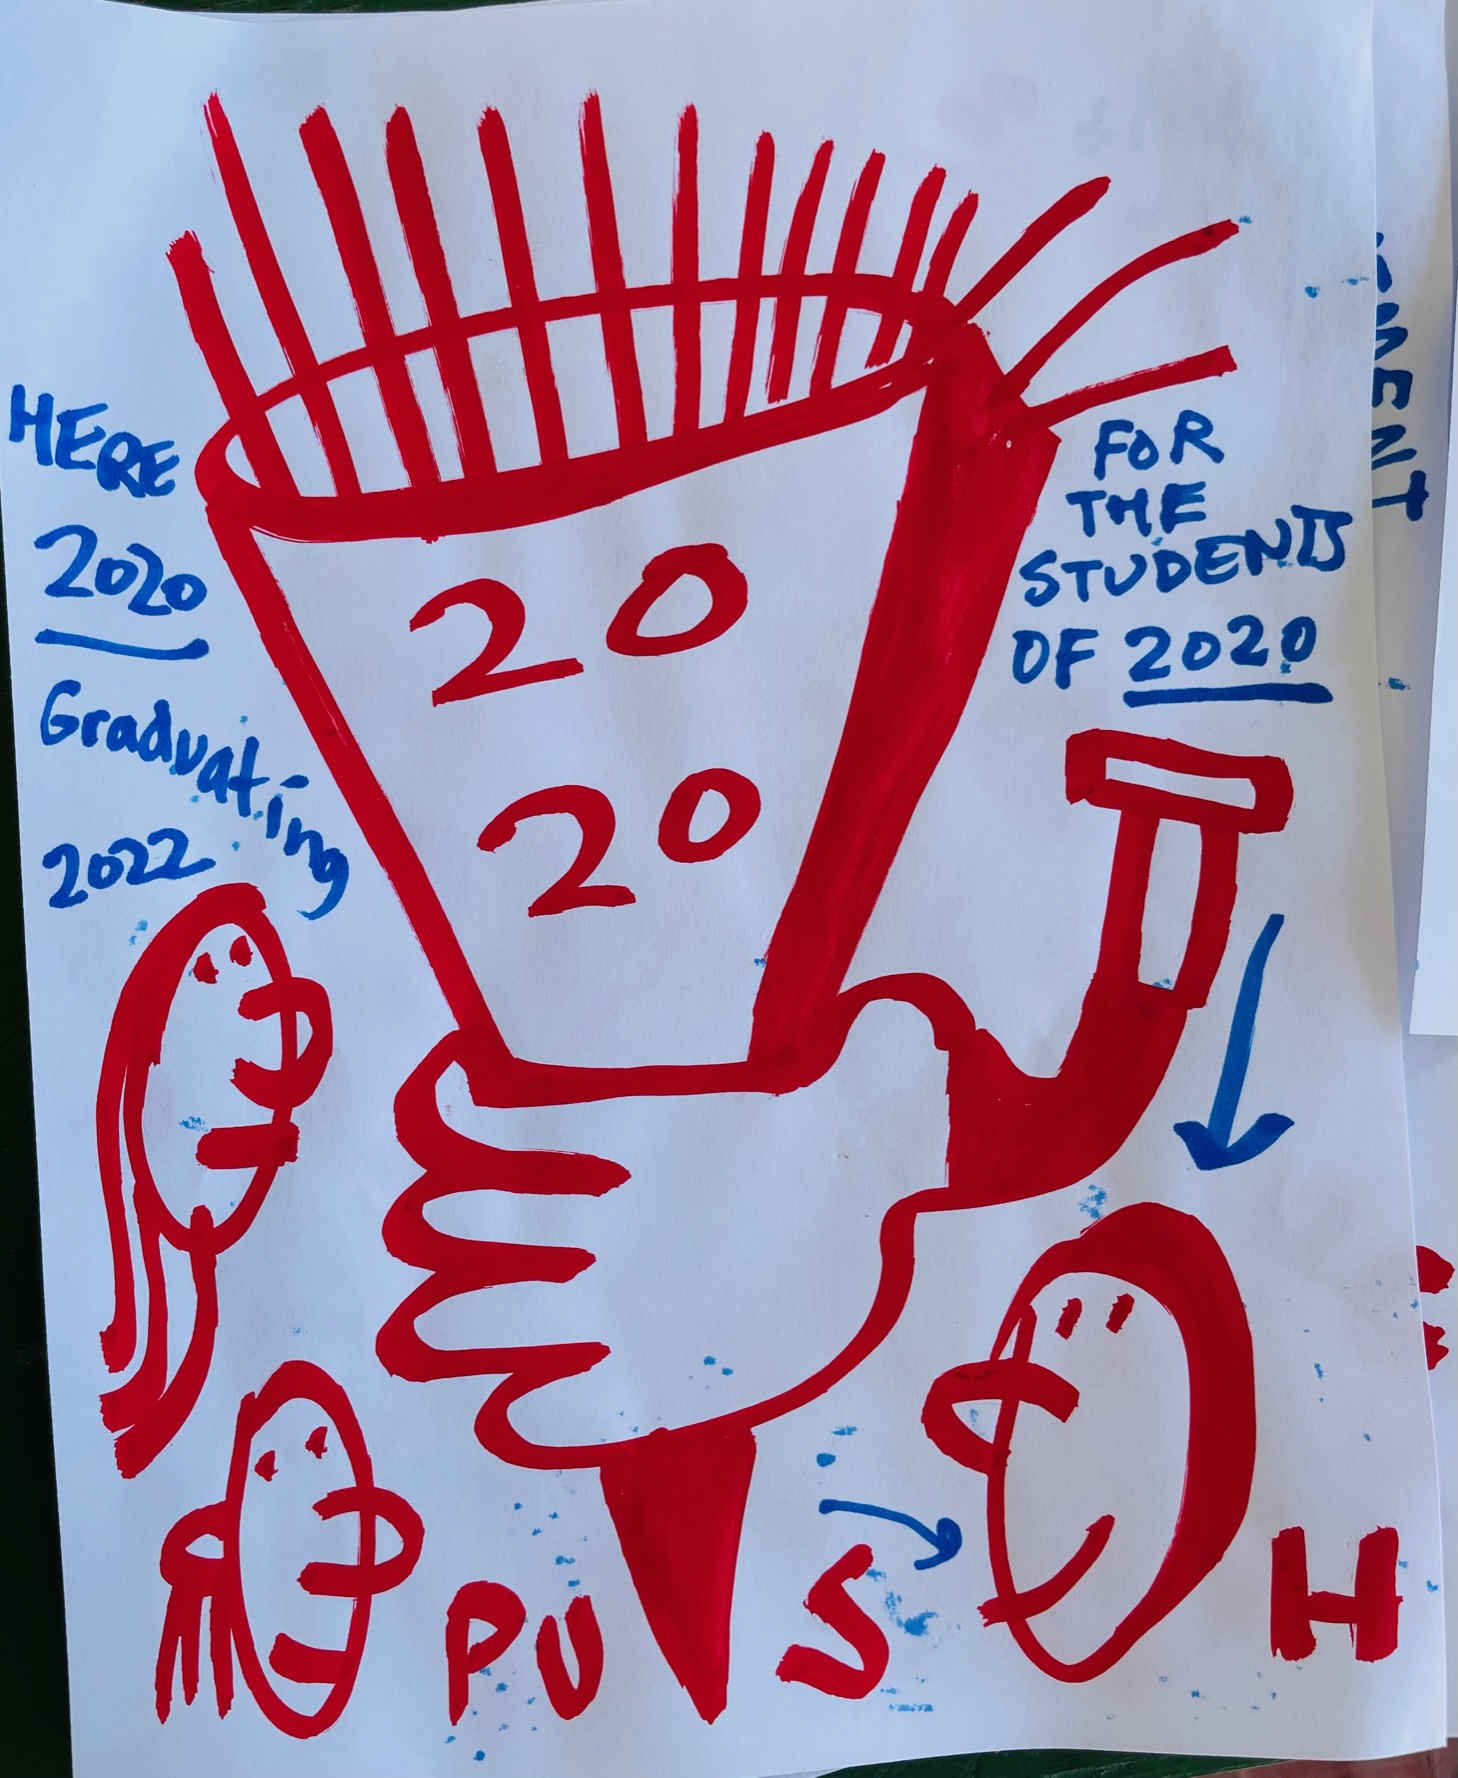 HERE
2020
Graduating
2022
FOR
THE
STUDENTS
OF 2020
20
20
PUSH